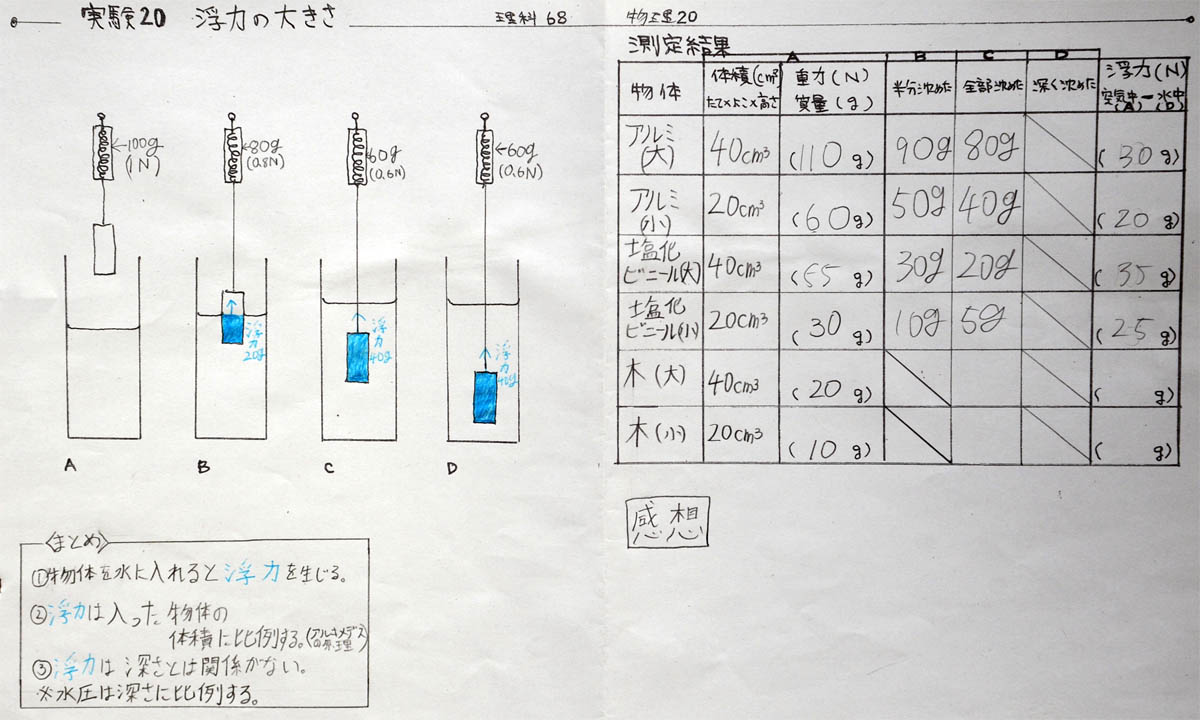 実験20 浮力の大きさ 理科 68
←100g
(1N)
←80g
(0.8N)
←60g
(0.6N)
←60g
(0.6N)
浮力20g
浮力40g
浮力40g
A B C D
〈まとめ〉
①物体を水に入れると浮力を生じる。
②浮力は入った物体の
体積に比例する。(アルキメデスの原理)
③浮力は深さとは関係がない。
※水圧は深さに比例する。
物理20
測定結果
A B C D
物体 体積(cm³) たて×よこ×高さ 重力(N) 質量(g) 半分沈めた 全部沈めた 深く沈めた 浮力(N) 空気中(A)-水中(D)
アルミ(大) 40cm³ (110g) 90g 80g (30g)
アルミ(小) 20cm³ (60g) 50g 40g (20g)
塩化ビニール(大) 40cm³ (55g) 30g 20g (35g)
塩化ビニール(小) 20cm³ (30g) 10g 5g (25g)
木(大) 40cm³ (20g) ( g)
木(小) 20cm³ (10g) ( g)
感想